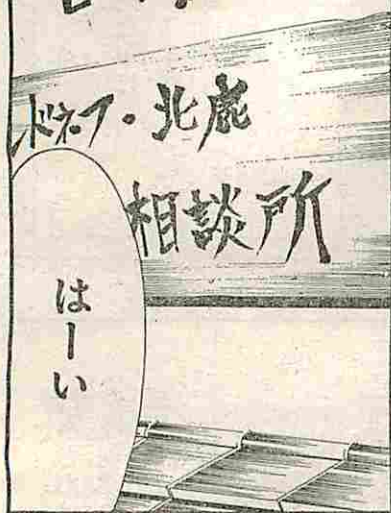 ドネフ・北鹿
相談所
はーい